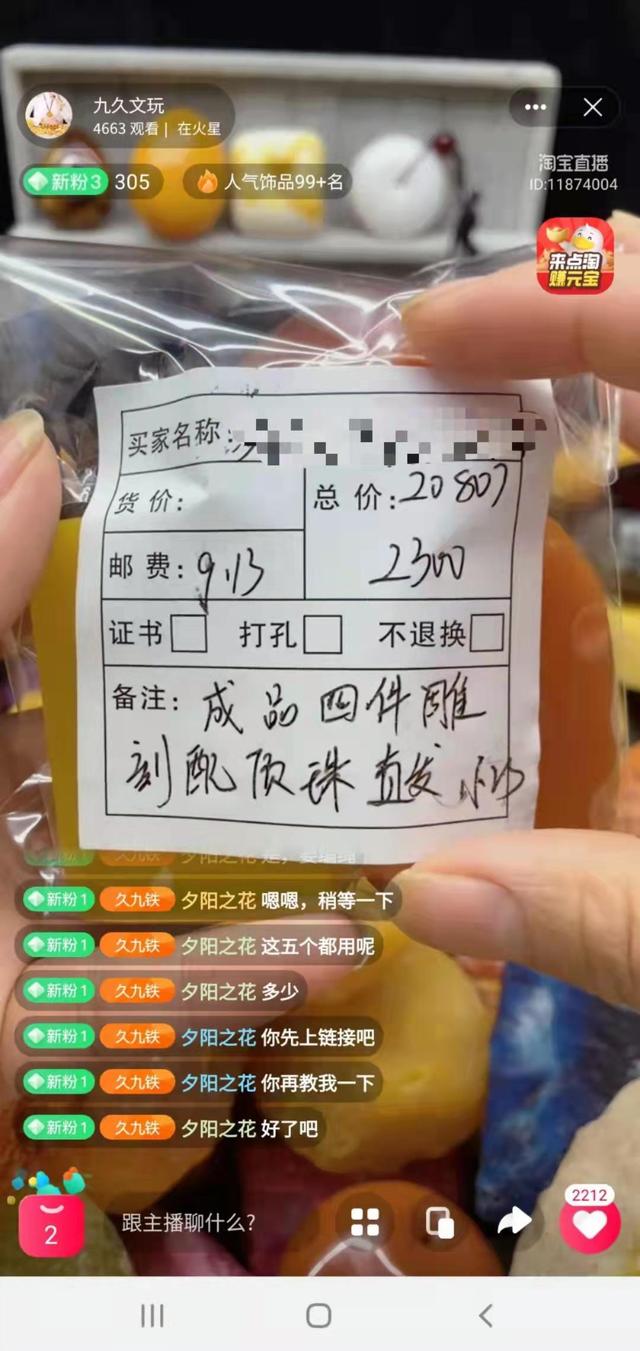 九久文玩
4663 观看 | 在火星
新粉3 305
人气饰品99+名
淘宝直播
ID:11874004
来点淘
赚元宝
买家名称:
货价:
总价:20807
2300
邮费:9.13
证书 打孔 不退换
备注:成品四件雕
刻配顶珠直发
新粉1 久九铁 夕阳之花 嗯嗯，稍等一下
新粉1 久九铁 夕阳之花 这五个都用呢
新粉1 久九铁 夕阳之花 多少
新粉1 久九铁 夕阳之花 你先上链接吧
新粉1 久九铁 夕阳之花 你再教我一下
新粉1 久九铁 夕阳之花 好了吧
2
跟主播聊什么?
2212